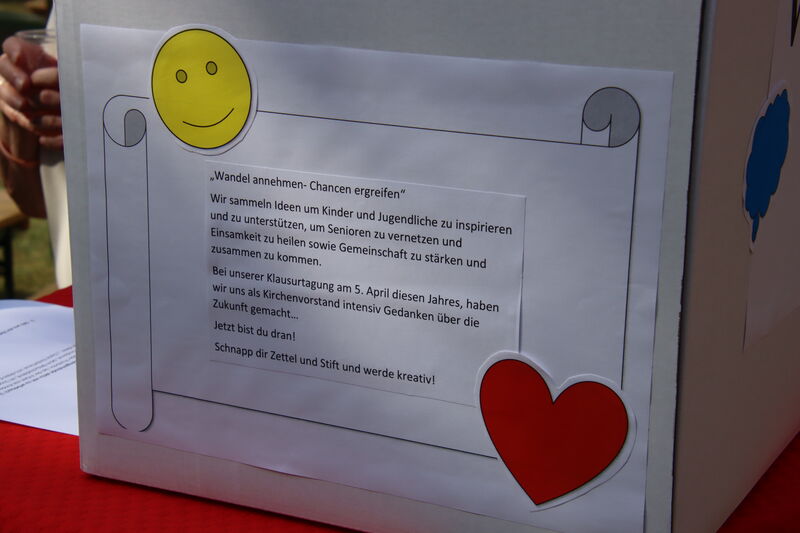 „Wandel annehmen- Chancen ergreifen"
Wir sammeln Ideen um Kinder und Jugendliche zu inspirieren
und zu unterstützen, um Senioren zu vernetzen und
Einsamkeit zu heilen sowie Gemeinschaft zu stärken und
zusammen zu kommen.
Bei unserer Klausurtagung am 5. April diesen Jahres, haben
wir uns als Kirchenvorstand intensiv Gedanken über die
Zukunft gemacht…
Jetzt bist du dran!
Schnapp dir Zettel und Stift und werde kreativ!